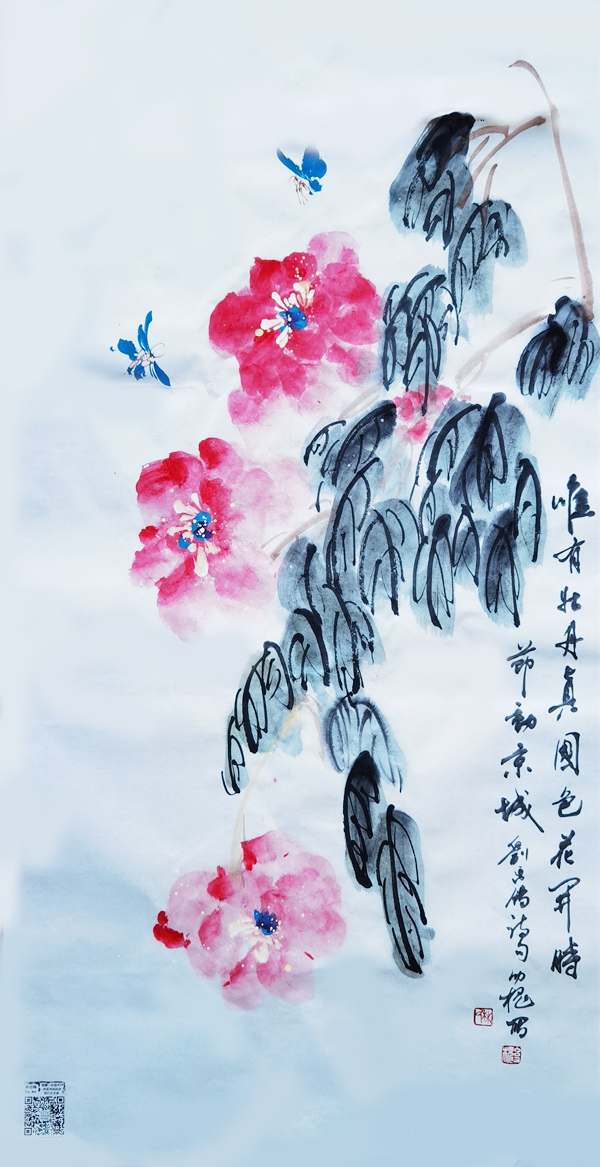 唯有牡丹真國色花開時
節動京城
劉禹錫詩句